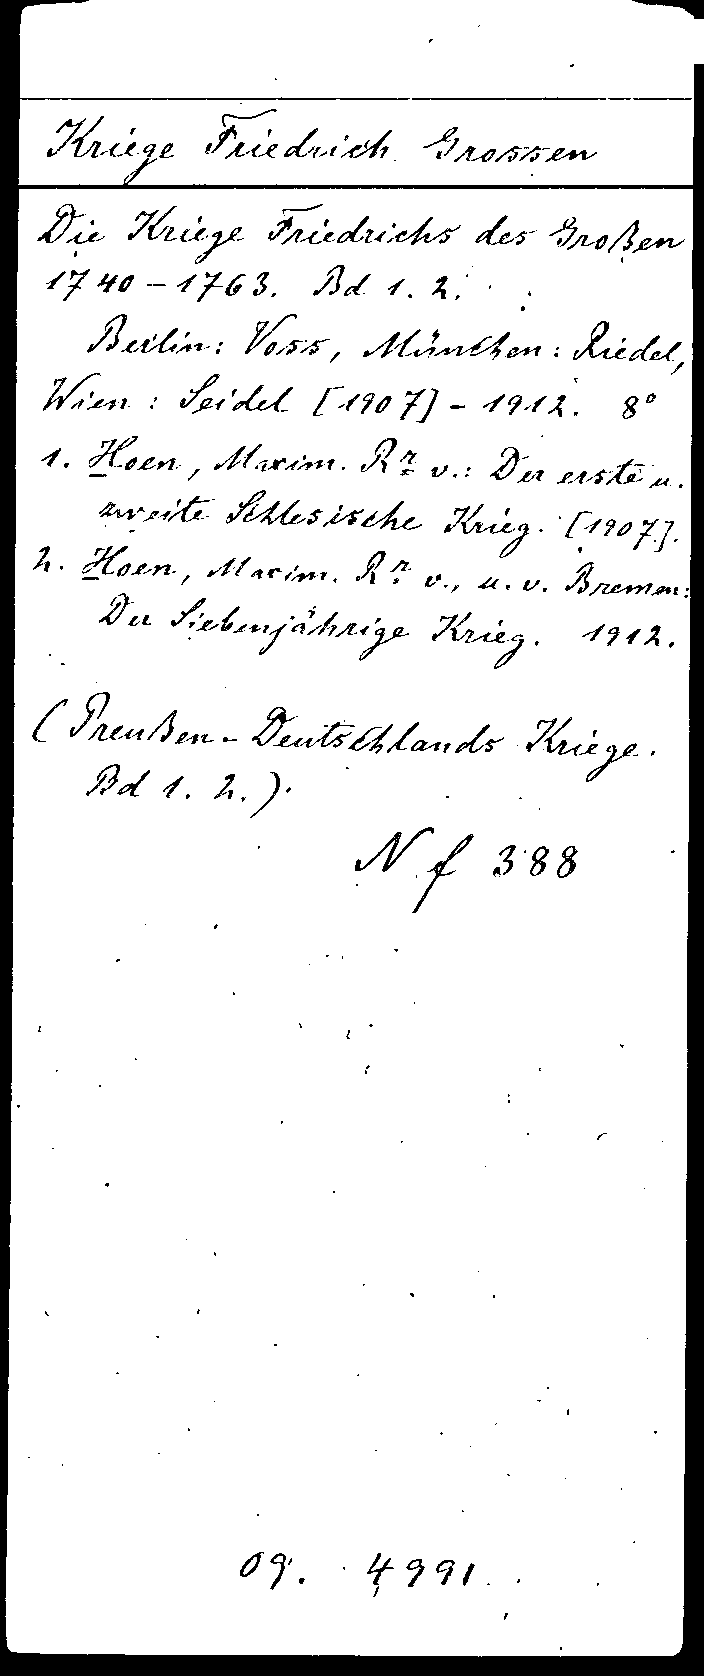 Kriege Friedrich Grossen
Die Kriege Friedrichs des Großen
1740-1763. Bd 1. 2.
Berlin: Voss, München: Riedel,
Wien: Seidel [1907] - 1912. 8°
1. Hoen, Maxim. Rr. v.: Der erste u.
zweite Schlesische Krieg. [1907].
2. Hoen, Maxim. Rr. v., u. v. Bremen:
Der Siebenjährige Krieg. 1912.
(Preußen-Deutschlands Kriege.
Bd 1. 2.).
N f 388
09. 4991